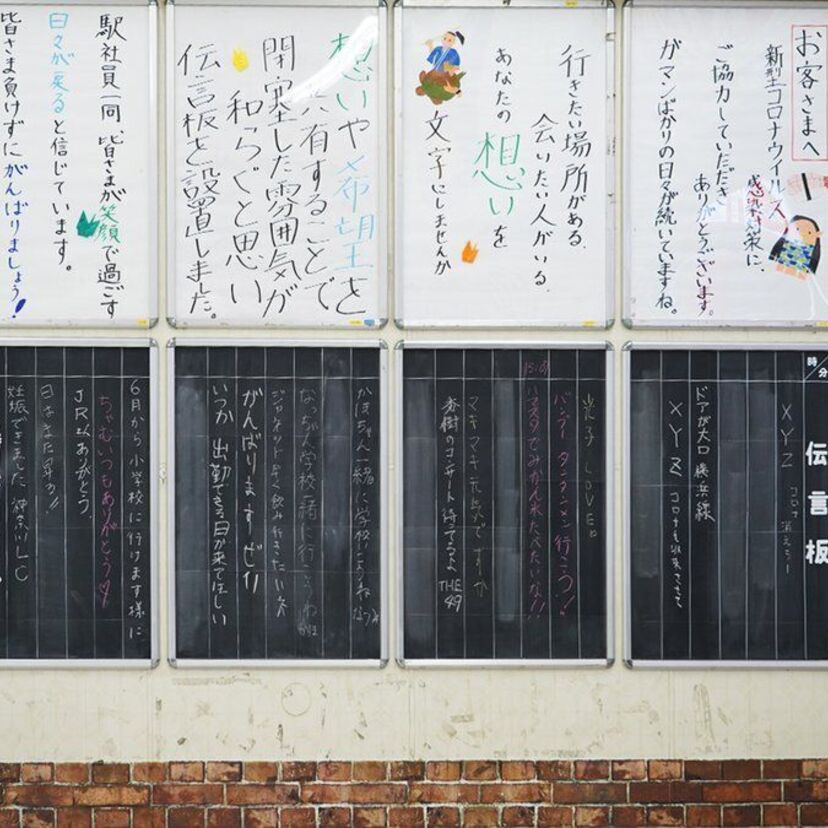 お客さまへ
新型コロナウイルス
感染対策に
ご協力していただき
ありがとうございます。
ガマンばかりの日々が続いていますね。
行きたい場所がある
会いたい人がいる
あなたの
想いを
文字にしませんか
想いや希望を
共有することで
閉塞した雰囲気が
和らぐと思い
伝言板を設置しました。
駅社員一同 皆さまが笑顔で過ごす
日々が戻ると信じています。
皆さま負けずにがんばりましょう!
時 分
伝言板
XYZ コロナ消えろー
ドアが大口 横浜線
XYZ
LOVE。
バンブータンタンメン行こう!
15:01
ハマスタでみかん氷たべたいな!!
マキマキ元気ですか
秀樹のコンサート待ってるよ THE 49
かほちゃん一緒に学校いこうね
なっちゃん学校一緒に行こうね
がんばりますゼ!!
いつか 出勤できる日が来てほしい
6月から小学校に行けます様に
ちゃむいつもありがとう
JRさんありがとう
日はまた昇る!!
妊娠できました 神奈川LC